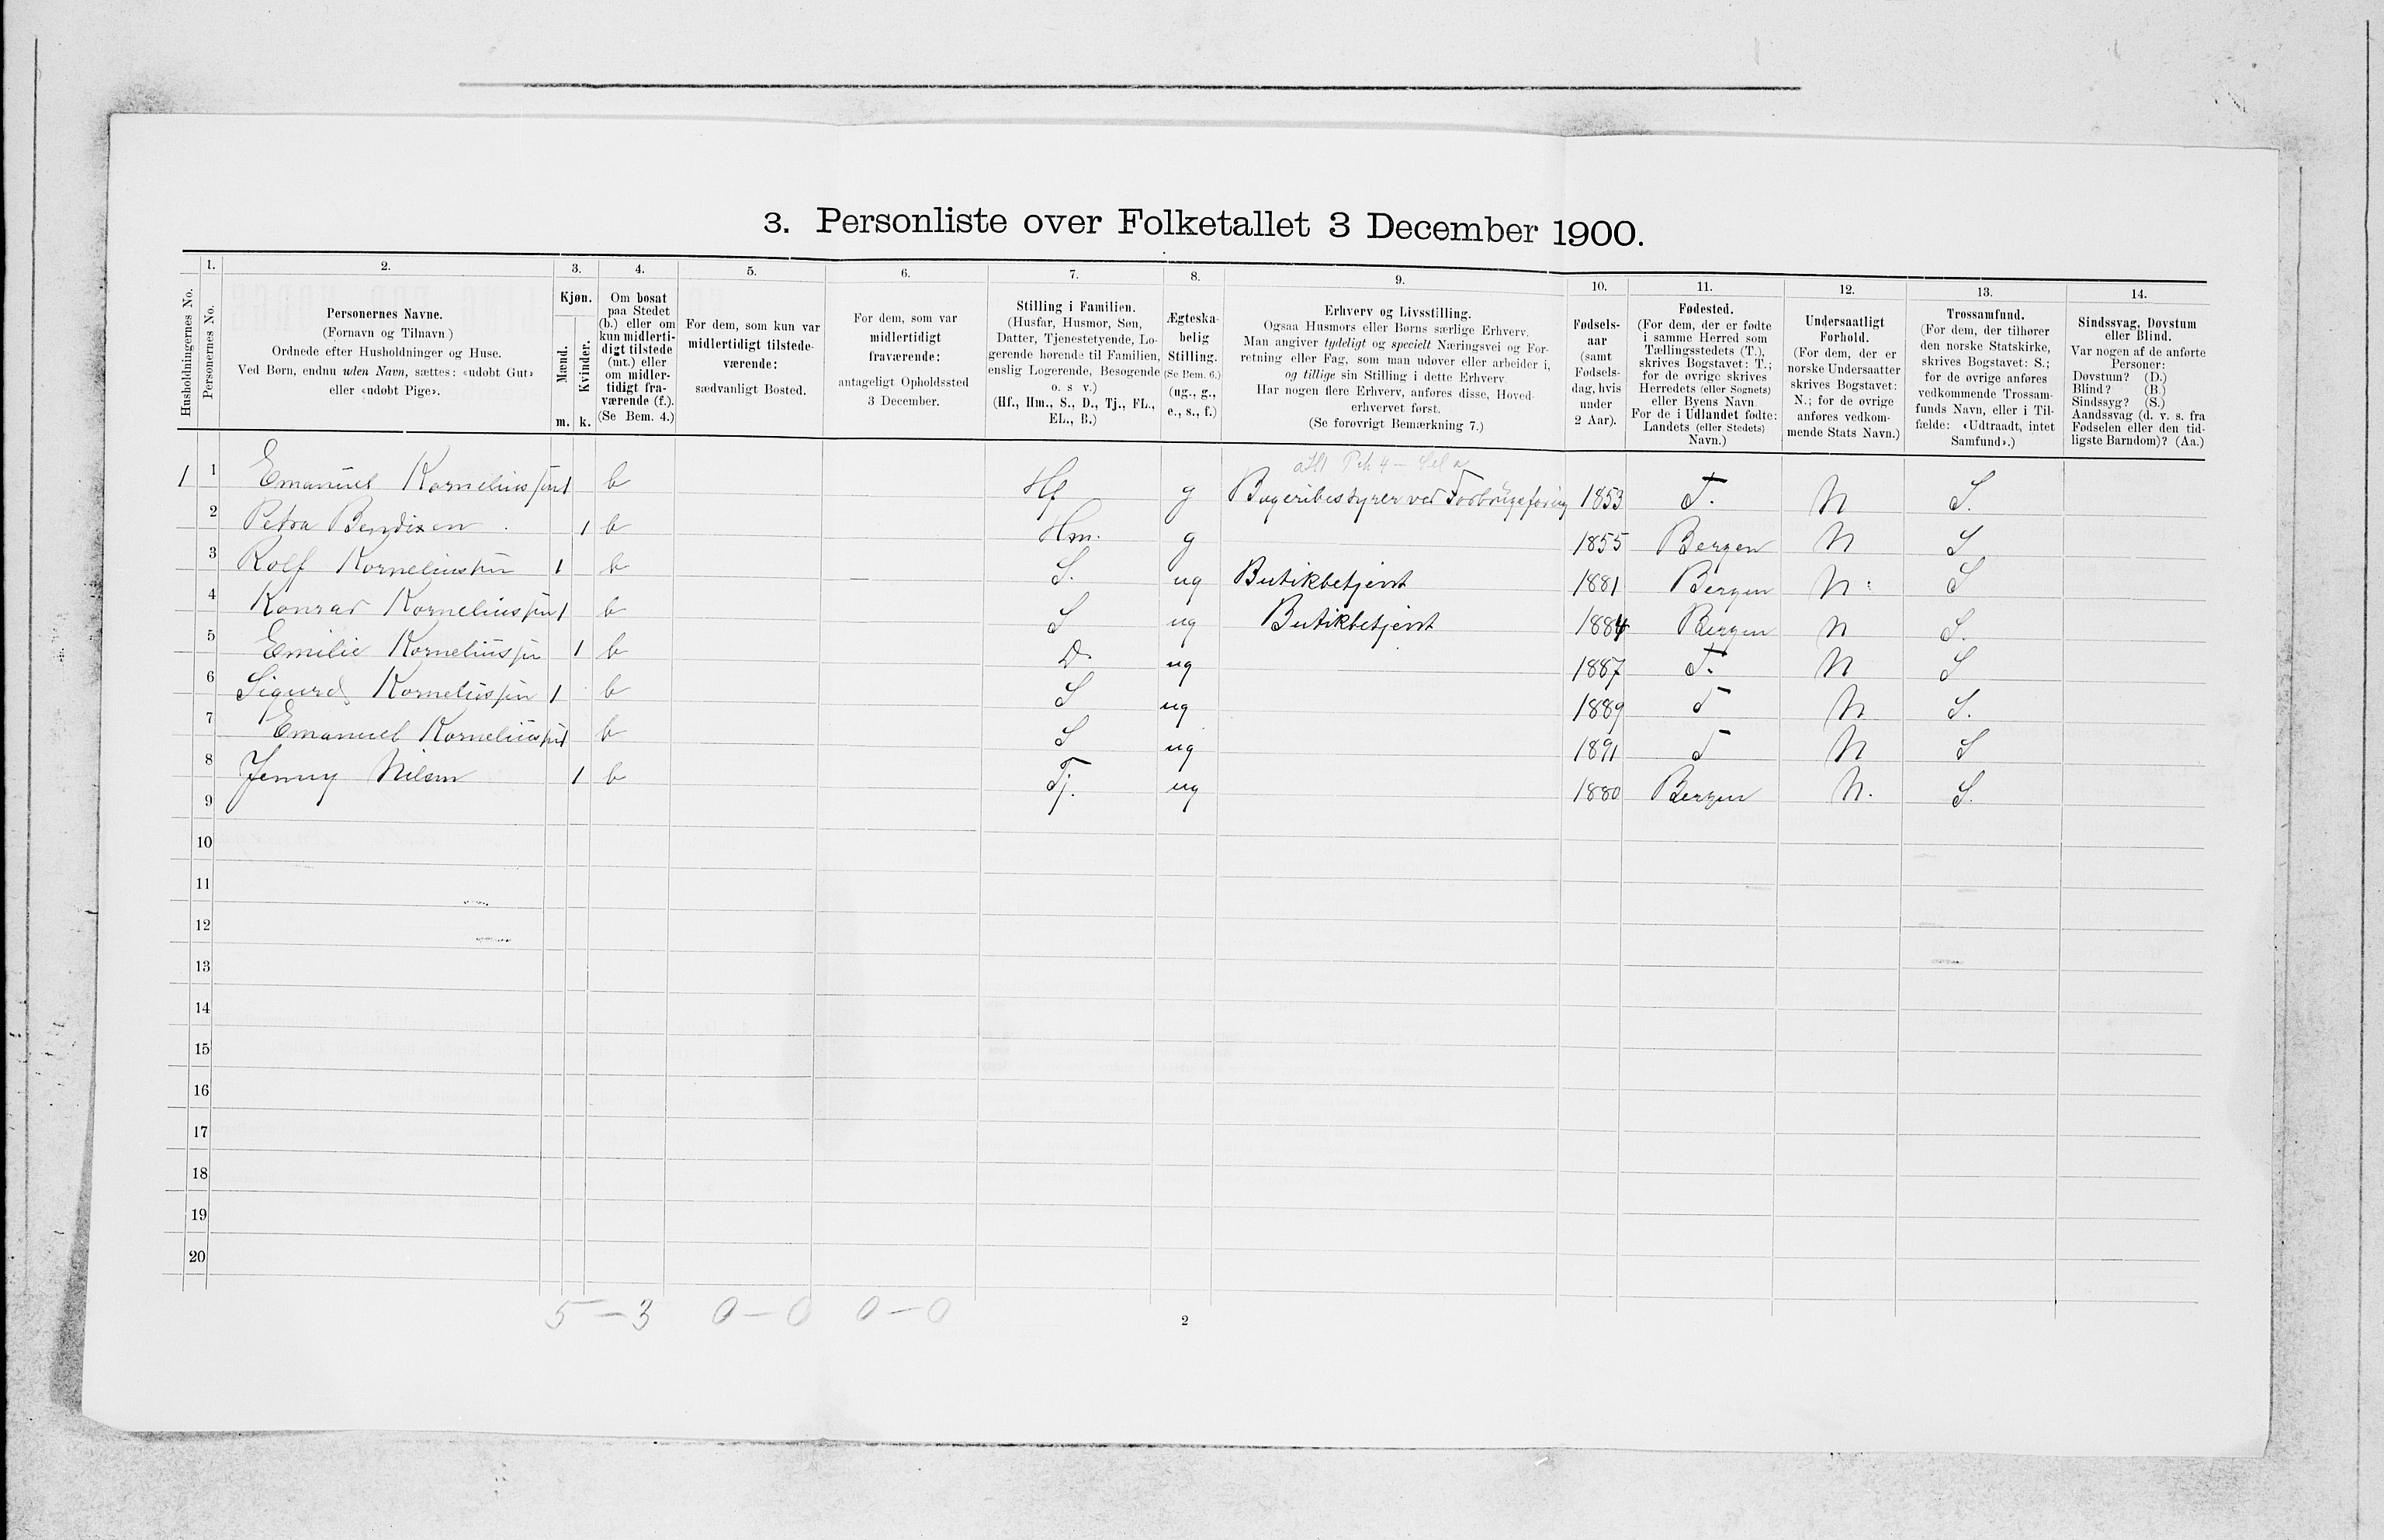 3. Personliste over Folketallet 3 December 1900.
Husholdningernes No.
1.
Personernes No.
2.
Personernes Navne.
(Fornavn og Tilnavn)
Ordnede efter Husholdninger og Huse.
Ved Børn, endnu uden Navn, sættes: «udøbt Gut»
eller «udøbt Pige».
3.
Kjøn.
Mænd.
Kvinder.
m. k.
4.
Om bosat
paa Stedet
(b.) eller om
kun midlerti-
digt tilstede
(mt.) eller
om midler-
tidigt fra-
værende (f.).
(Se Bem. 4.)
5.
For dem, som kun var
midlertidigt tilstede-
værende:
sædvanligt Bosted.
6.
For dem, som var
midlertidigt
fraværende:
antageligt Opholdssted
3 December.
7.
Stilling i Familien.
(Husfar, Husmor, Søn,
Datter, Tjenestetyende, Lo-
gerende hørende til Familien,
enslig Logerende, Besøgende
o. s v.)
(Hf., Hm., S., D., Tj., FL.,
EL., B.)
8.
Ægteska-
belig
Stilling.
(Se Bem. 6.)
(ug., g.,
e., s., f.)
9.
Erhverv og Livsstilling.
Ogsaa Husmors eller Børns særlige Erhverv.
Man angiver tydeligt og specielt Næringsvei og For-
retning eller Fag, som man udøver eller arbeider i,
og tillige sin Stilling i dette Erhverv.
Har nogen flere Erhverv, anføres disse, Hoved-
erhvervet først.
(Se forøvrigt Bemærkning 7.)
10.
Fødsels-
aar
(samt
Fødsels-
dag, hvis
under
2 Aar).
11.
Fødested.
(For dem, der er fødte
i samme Herred som
Tællingsstedets (T.),
skrives Bogstavet: T.;
for de øvrige skrives
Herredets (eller Sognets)
eller Byens Navn
For de i Udlandet fødte:
Landets (eller Stedets)
Navn.)
12.
Undersaatligt
Forhold.
(For dem, der er
norske Undersaatter
skrives Bogstavet:
N.; for de øvrige
anføres vedkom-
mende Stats Navn.)
13.
Trossamfund.
(For dem, der tilhører
den norske Statskirke,
skrives Bogstavet: S.;
for de øvrige anføres
vedkommende Trossam-
funds Navn, eller i Til-
fælde: «Udtraadt, intet
Samfund».)
14.
Sindssvag, Døvstum
eller Blind.
Var nogen af de anførte
Personer:
Døvstum? (D.)
Blind? (B.)
Sindssyg? (S.)
Aandssvag (d. v. s. fra
Fødselen eller den tid-
ligste Barndom)? (Aa.)
1 1 Emanuel Korneliussen 1 b Hf g Bageribestyrer ved Forbrugsforing 1853 T. N S.
2 Petra Bendixen . 1 b Hm. g 1855 Bergen N S
3 Rolf Korneliussen 1 b S. ug Butikbetjent 1881 Bergen N: S
4 Konrad Korneliussen 1 b S ug Butikbetjent 1884 Bergen N S.
5 Emilie Korneliussen 1 b D. ug 1887 T. N S
6 Sigurd Korneliussen 1 b S ug 1889 T N S.
7 Emanuel Korneliussen 1 b S ug 1891 T N S
8 Jenny Nilsen 1 b Tj. ug 1880 Bergen N. S.
9
10
11
12
13
14
15
16
17
18
19
20
5 – 3 0 – 0 0 – 0
2